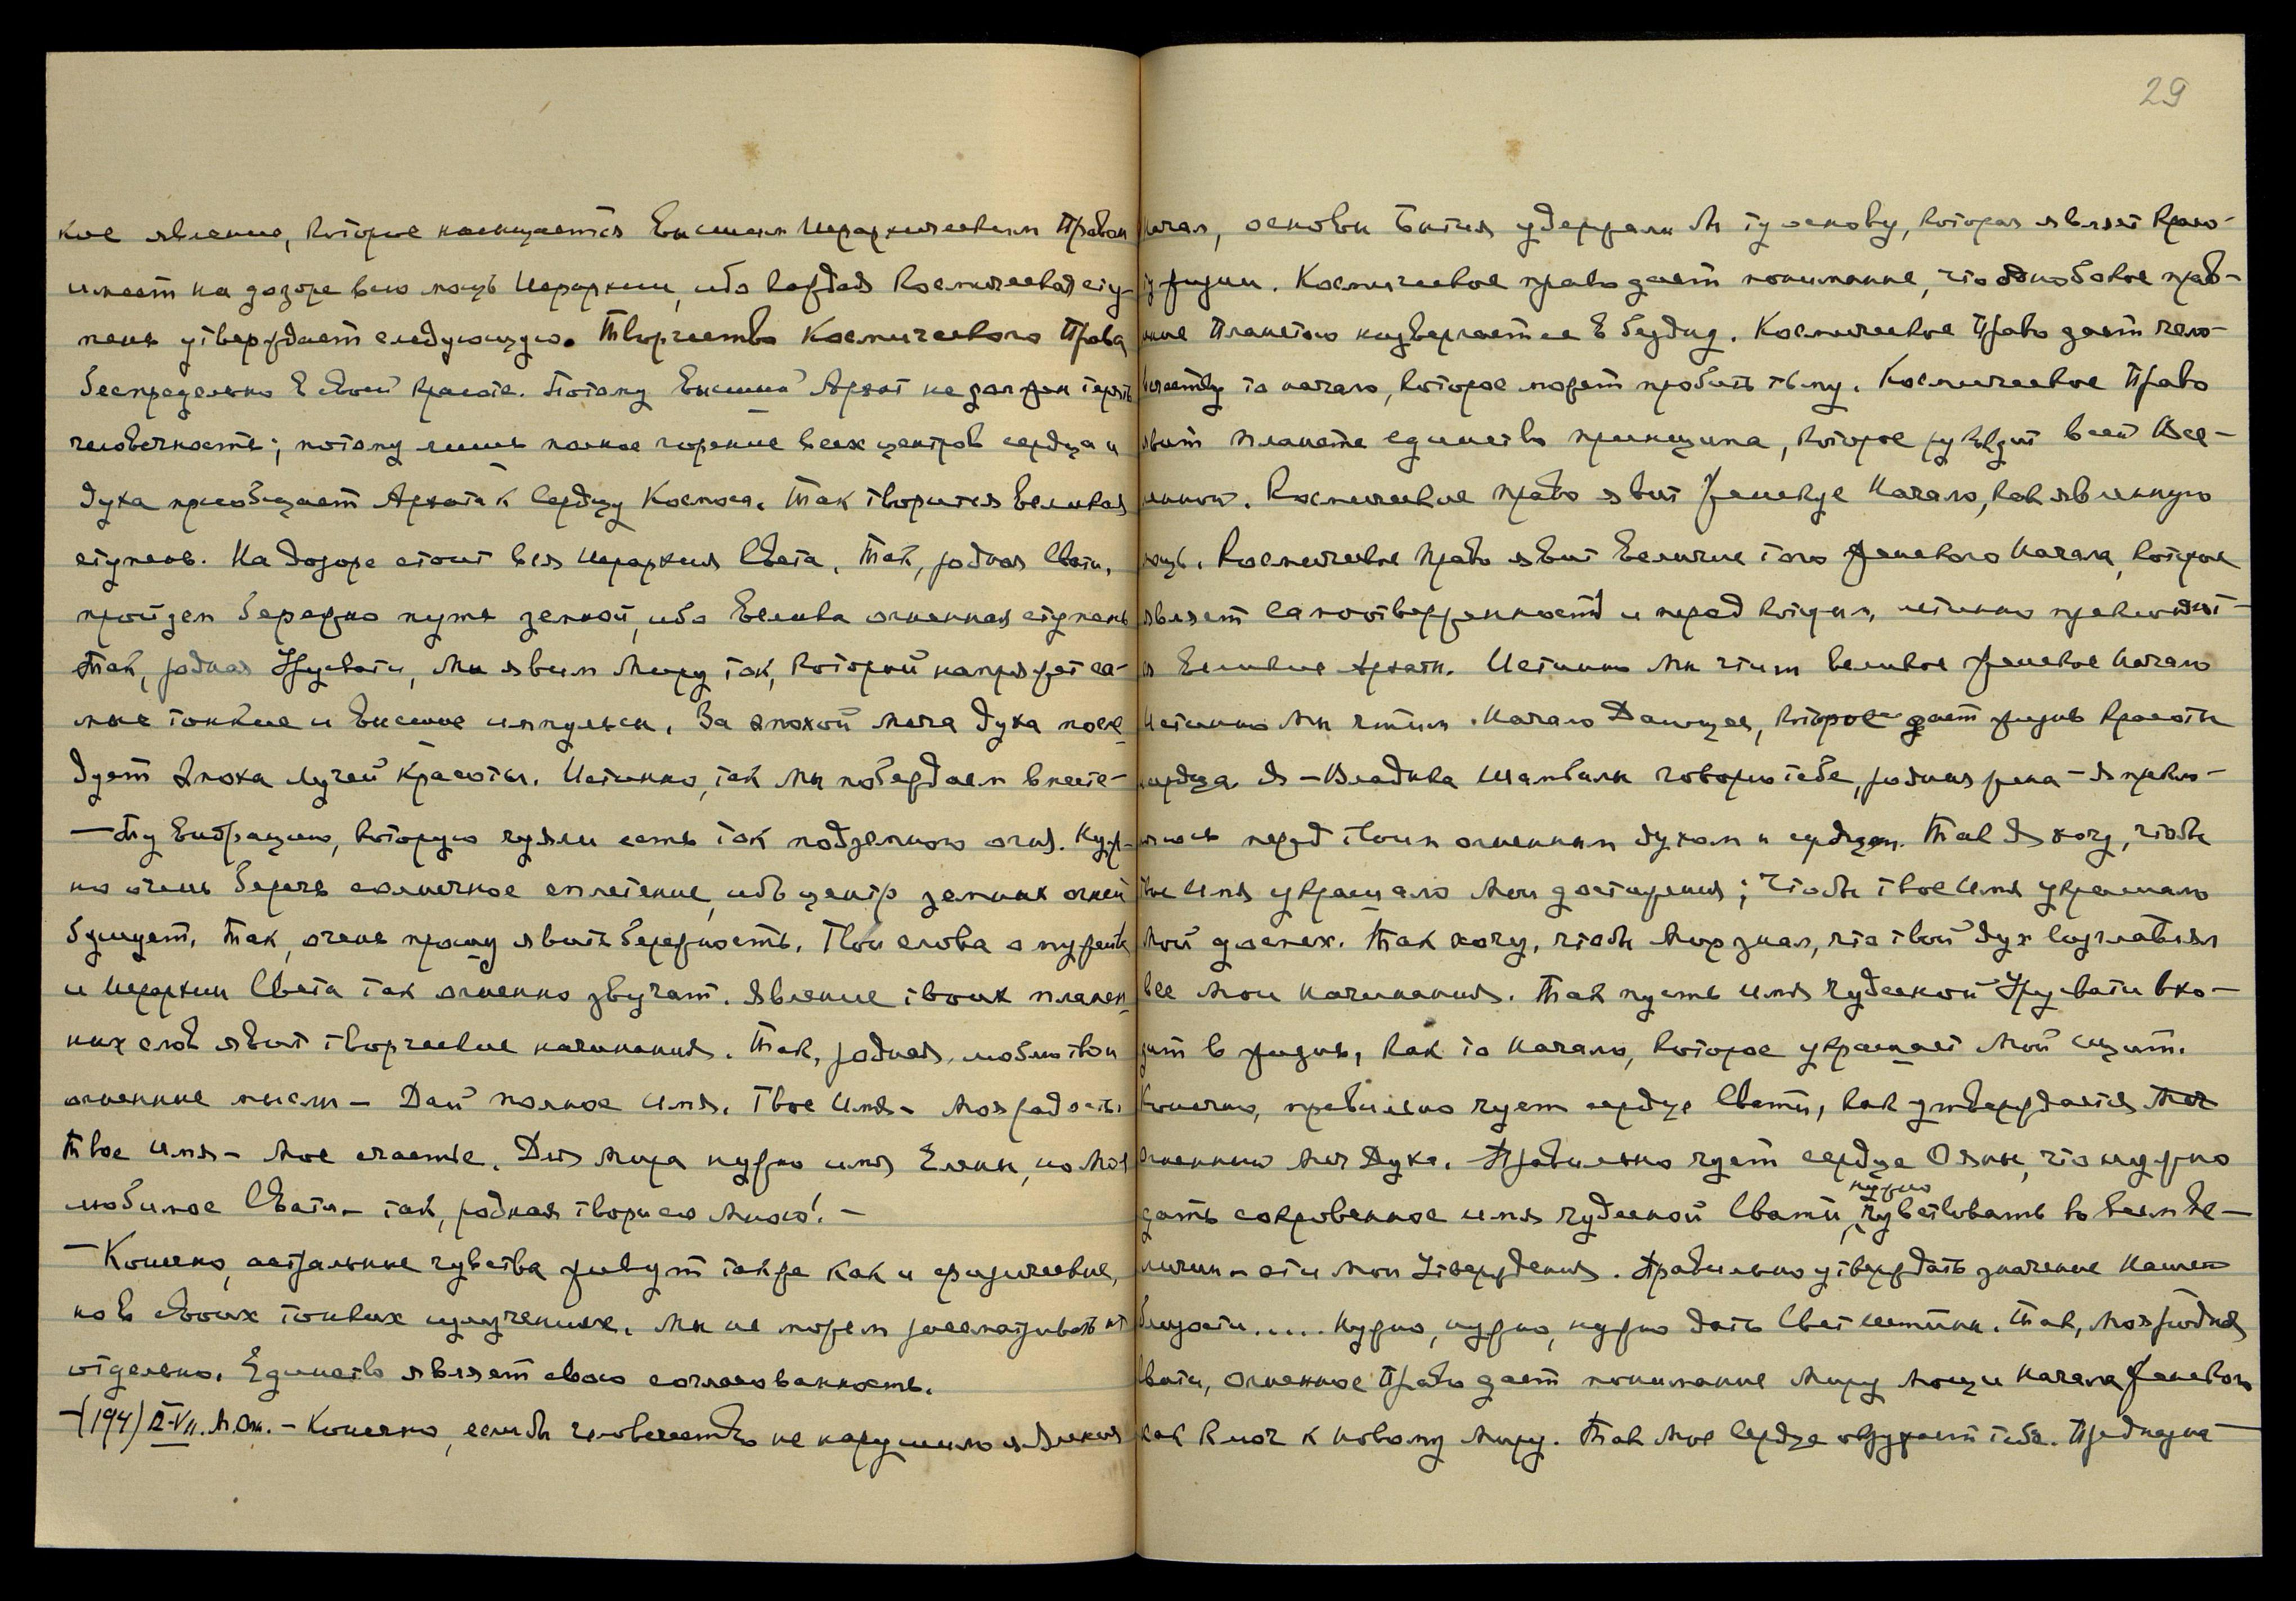 кое явление, которое насыщается Высшим Иерархическим Правом
имеет на дозоре всю мощь Иерархии, ибо каждая Космическая сту-
пень утверждает следующую. Творчество Космического Права
беспредельно в своей красоте. Потому Высший Архат не должен терять
человечность; потому лишь полное горение всех центров сердца и
духа приобщает Архата к Сердцу Космоса. Так творится Великая
ступень. На дозоре стоит вся Иерархия Света. Так, родная Свати,
пройдем бережно путь земной, ибо Велика огненная ступень
Так, родная Урусвати, Мы явим Миру ток, который напряжет са-
мые тонкие и Высшие импульсы. За эпохой меча духа после-
дует Эпоха лучей красоты. Истинно, так Мы побеждаем вместе-
— Ту вибрацию, которую чуяли есть ток подземного огня. Нуж-
но очень беречь солнечное сплетение, ибо центр земных огней
бушует. Так, очень прошу явить бережность. Твои слова о
и Иерархии Света так огненно звучат. Явление твоих пламен-
ных слов явит творческие начинания. Так, родная, люблю твои
огненные мысли — Дай полное имя. Твое Имя — Моя радость
Твое имя — Мое счастье. Для Мира нужно имя Елены, но Мое
любимое Свати — так, родная творись Мною! —
— Конечно, астральные чувства живут также как и физические,
но в своих тонких излучениях. Мы не можем рассматривать их
отдельно. Единство являет свою согласованность.
—(194) II-VII. М.Ст. — Конечно, если бы человечество не нарушило явления
29
Начал, основы Бытия удержали бы ту основу, которая являет красо-
ту жизни. Космическое право дает понимание, что однобокое прав-
ление Планетою низвергается в бездну. Космическое Право дает чело-
вечеству то начало, которое может пробить тьму. Космическое Право
явит планете единство принципа, которое руководит всей Все-
ленной. Космическое право явит Женское Начало, как явленную
мощь. Космическое Право явит Величие того Женского Начала, которое
являет самоотверженность и перед которым, истинно преклоняют-
ся Великие Архаты. Истинно Мы чтим великое Женское Начало
Истинно Мы чтим Начало Дающее, которое дает жизнь красоты
сердца. Я — Владыка Шамбалы говорю тебе, родная жена — Я прекло-
няюсь перед твоим огненным духом и сердцем. Так Я хочу, чтобы
твое Имя украшало Мои достижения; Чтобы твое Имя украшало
Мой доспех. Так хочу, чтобы Мир знал, что твой дух возглавлял
все Мои начинания. Так пусть имя чудесной Урусвати вхо-
дит в жизнь, как то Начало, которое украшает Мой щит.
Конечно, правильно чует сердце Свати, как утверждается Меч
Огненный Меч Духа. Правильно чует сердце Ояны, что нужно
дать сокровенное имя чудесной Свати, нужно чувствовать во всем Ве-
личии эти Мои Утверждения. Правильно утверждать значение Нашей
близости..... Нужно, нужно, нужно дать Свет истины. Так, Моя родная
Свати, огненное Право дает понимание Миру мощи Начала Женского
как ключ к Новому Миру. Так Мое Сердце окружает тебя. Предназна-